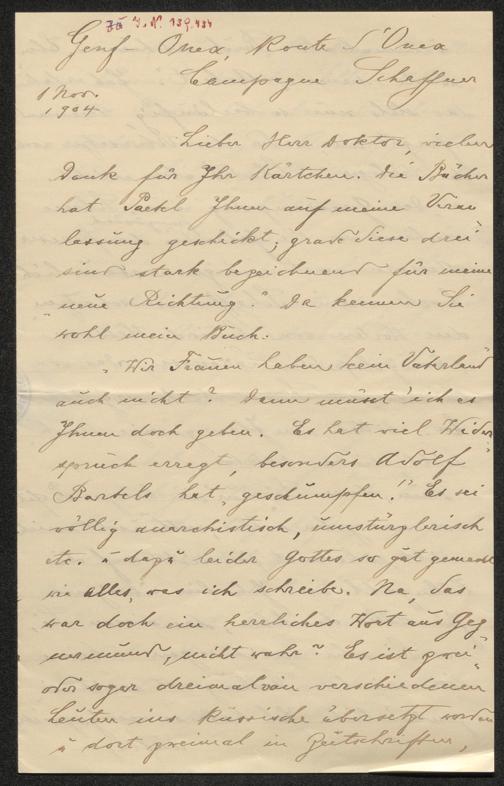 Zu I. N. 139.434
Genf-Onex, Route d'Onex
Campagne Schaffner
1 Nov.
1904
Lieber Herr Doktor, vielen
Dank für Ihr Kärtchen. Die Bücher
hat Paetel Ihnen auf meine Veran
lassung geschickt; grade diese drei
sind stark bezeichnend für meine
"neue Richtung." Da kennen Sie
wohl mein Buch:
"Wir Frauen haben kein Vaterland"
auch nicht? Dann müsst' ich es
Ihnen doch geben. Es hat viel Wider
spruch erregt, besonders Adolf
Bartels hat "geschumpfen!" Es sei
völlig anarchistisch, umstürzlerisch
etc. u dazu leider Gottes so gut gemacht
wie alles, was ich schreibe. Na, das
war doch ein herrliches Wort aus Geg
nermund, nicht wahr? Es ist zwei-
oder sogar dreimal von verschiedenen
Leuten ins Russische übersetzt worden
u dort zweimal in Zeitschriften,